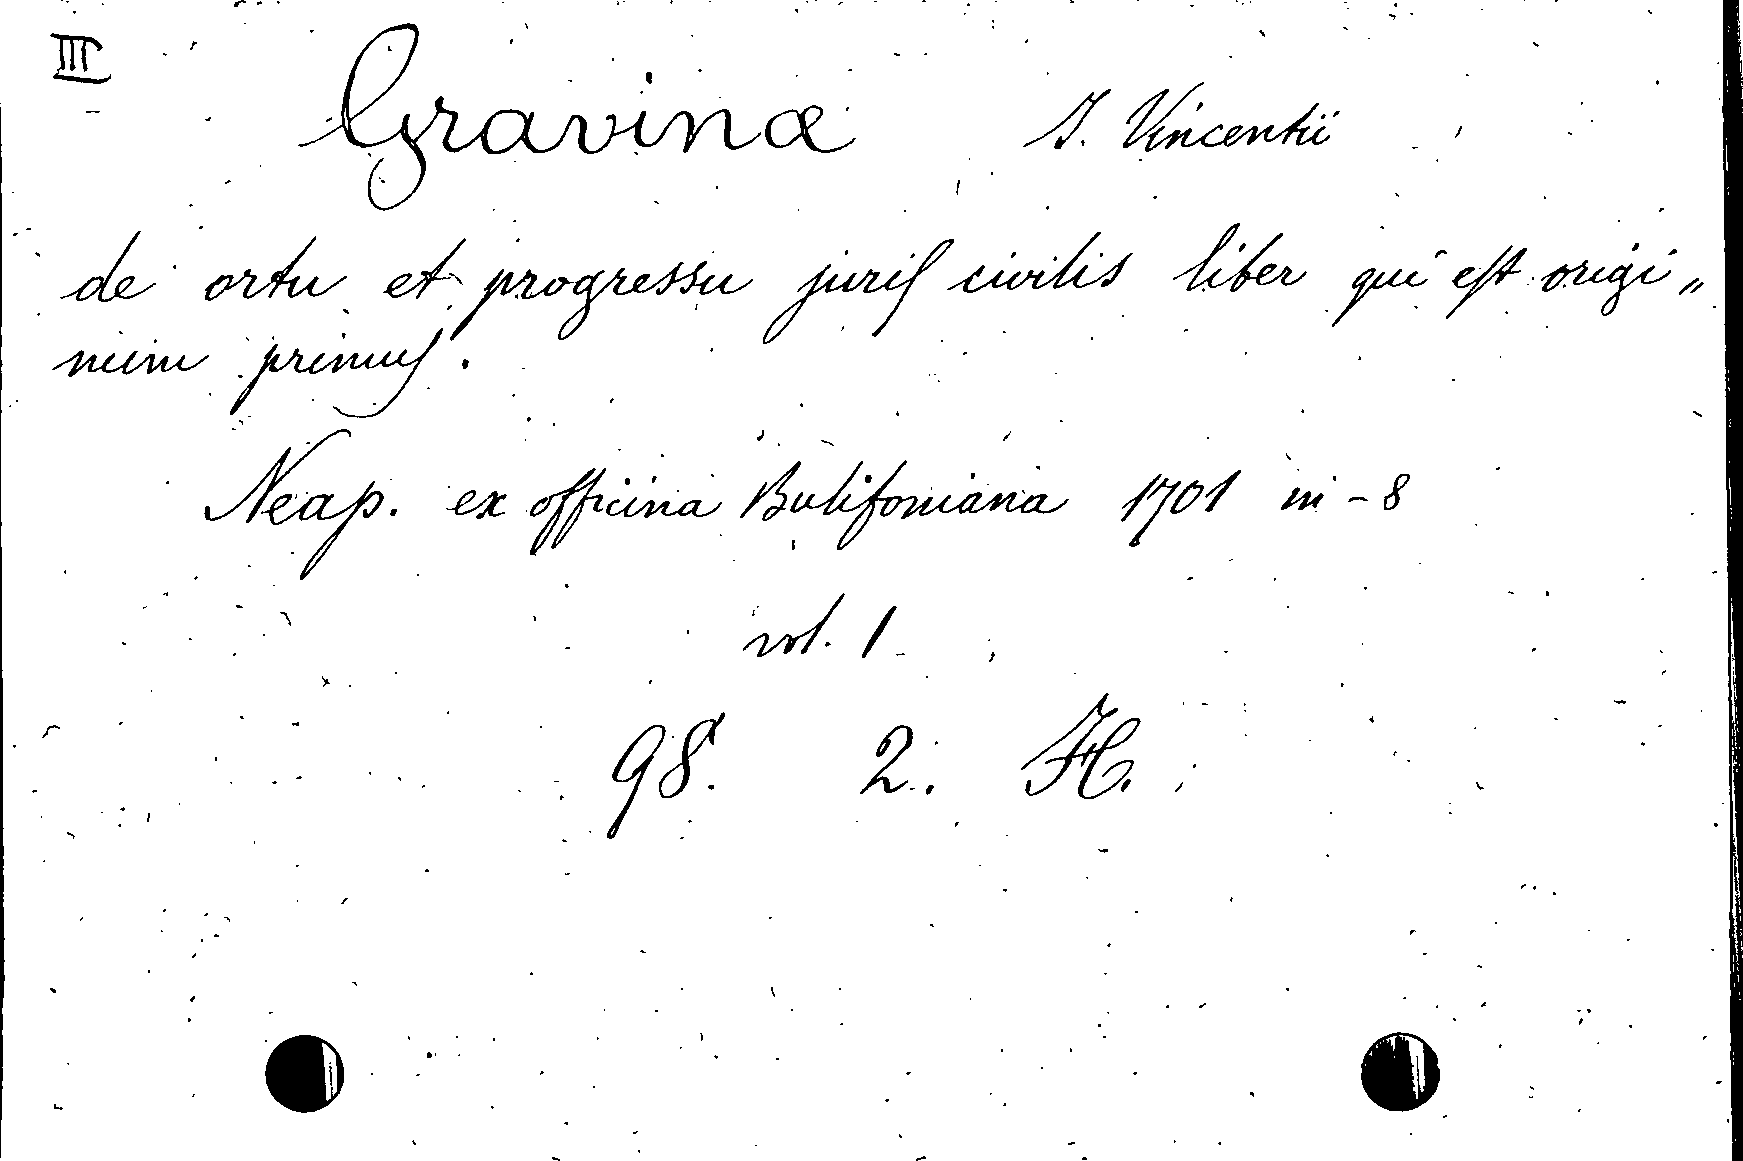 III
Gravinæ J. Vincentii
de ortu et progressu juris civilis liber qui est origi„
num primus.
Neap. ex officina Bulifoniana 1701 in-8
vol. 1
98. 2. H.